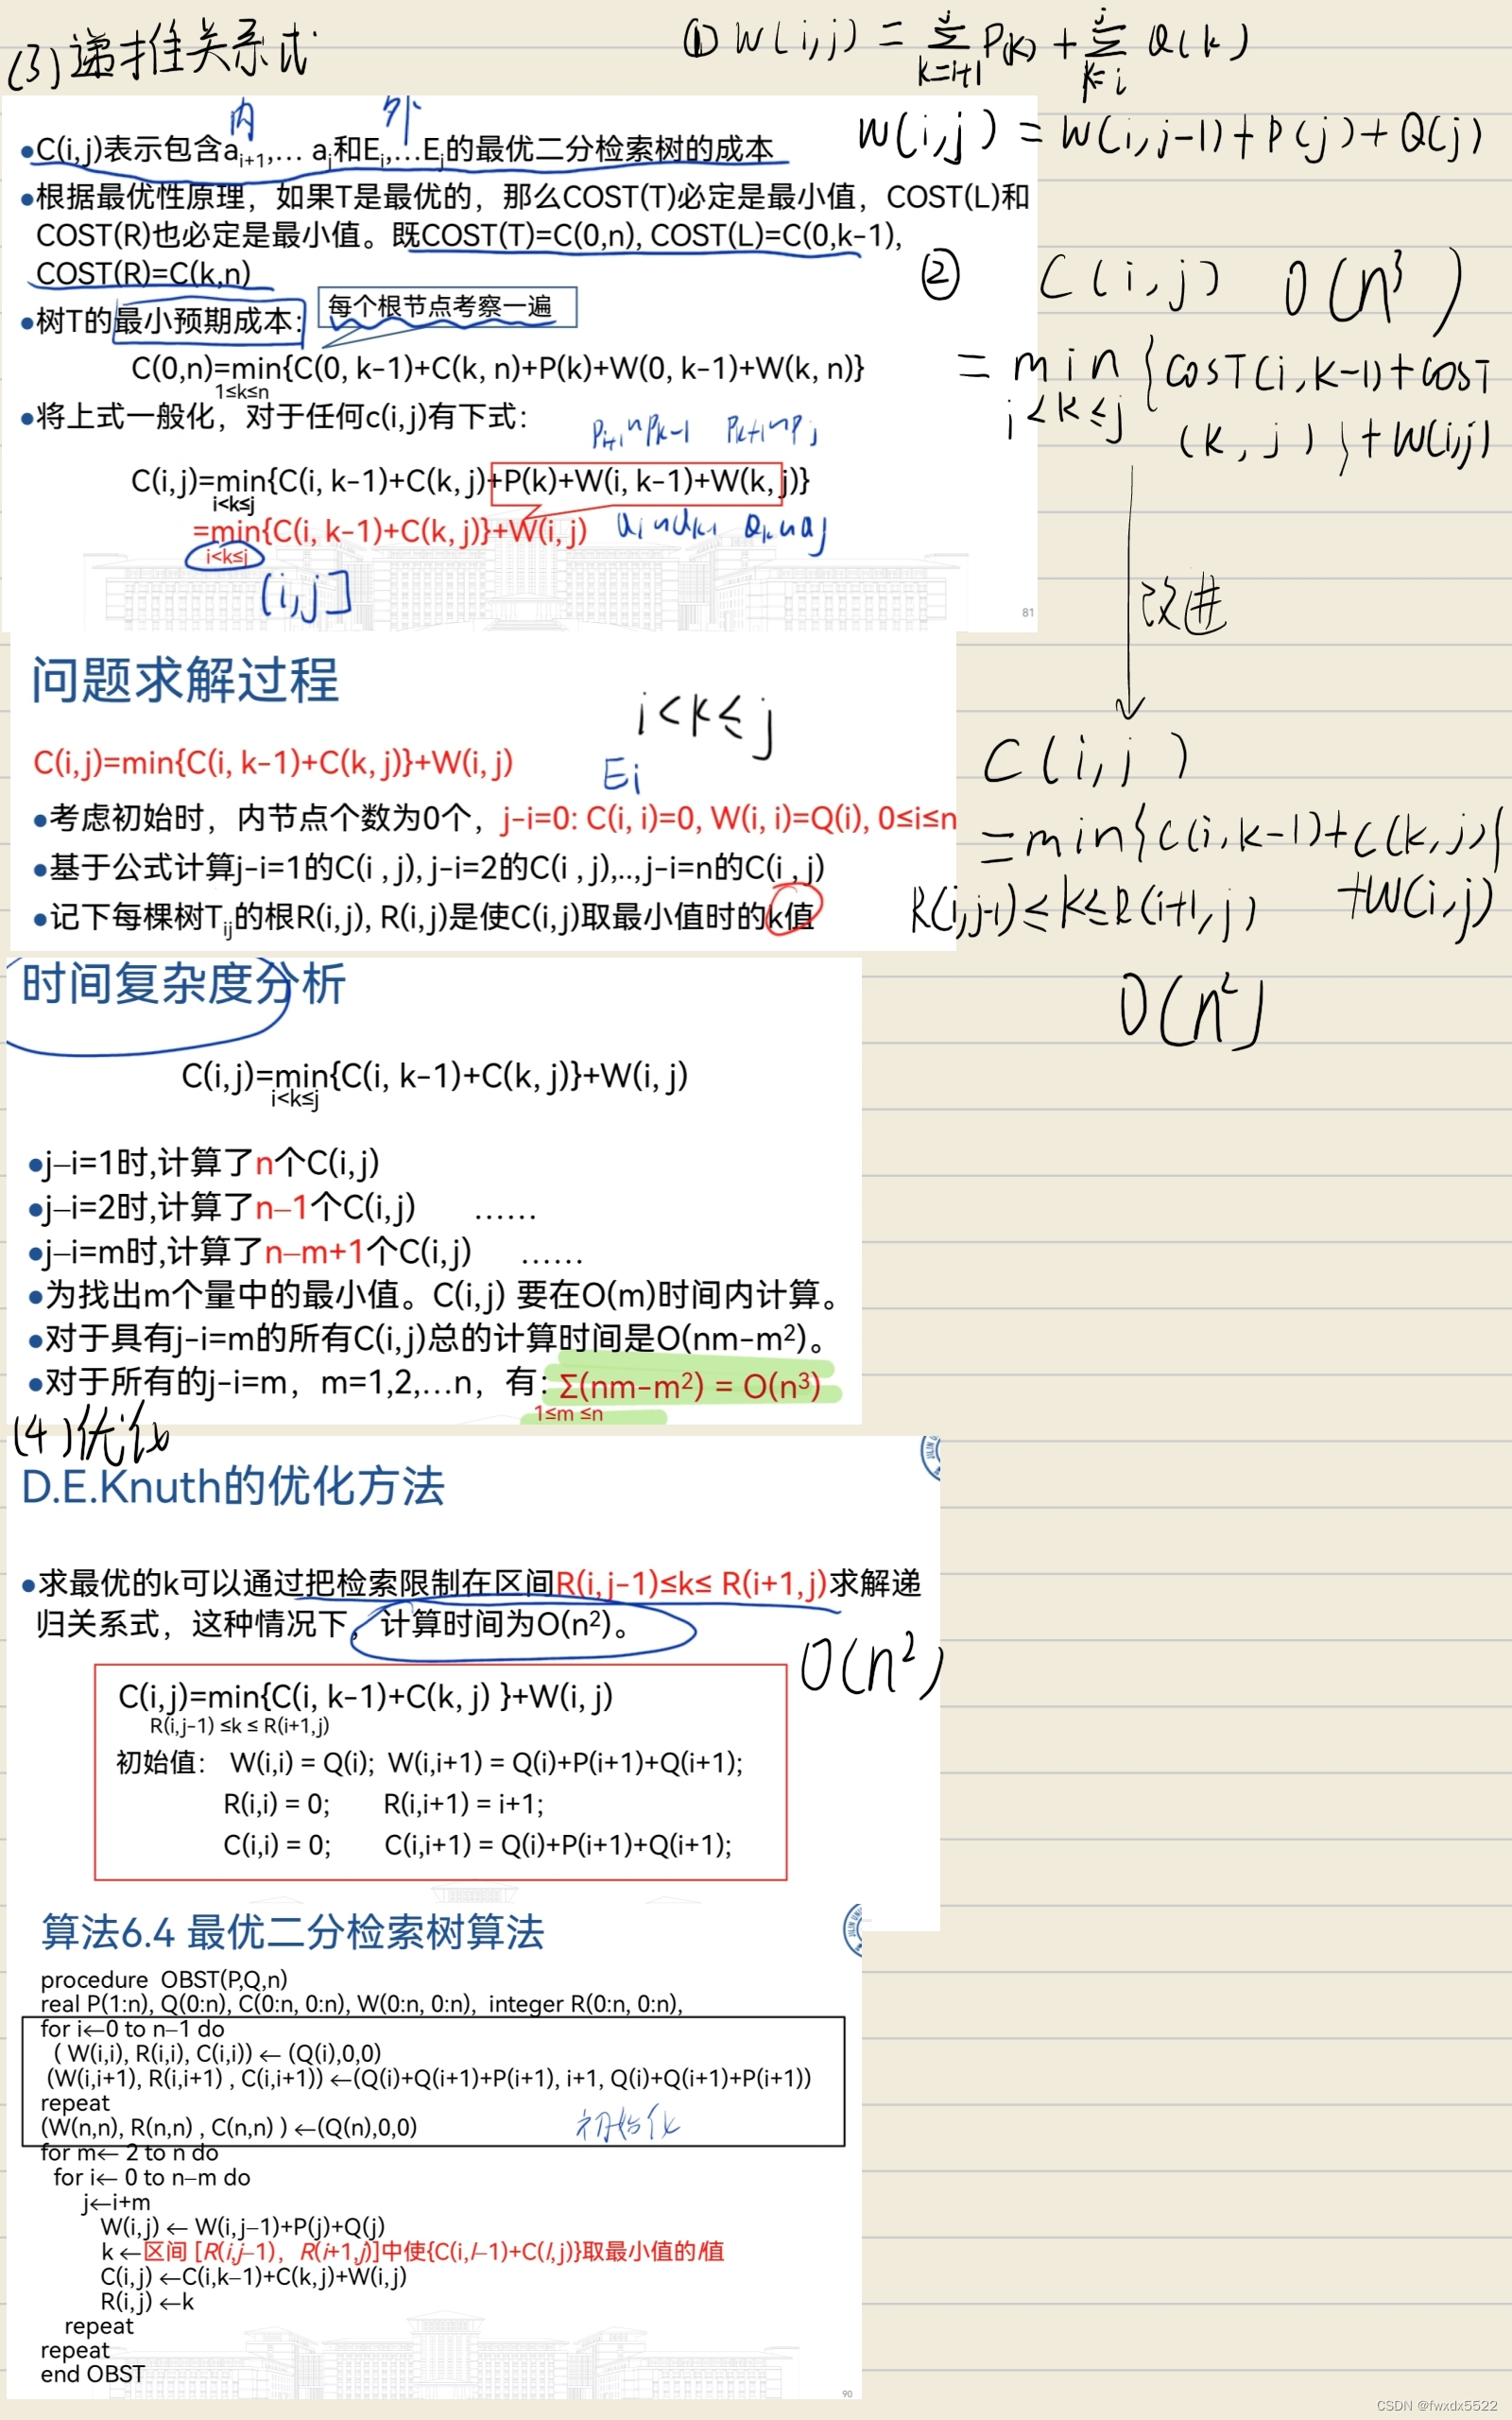 (3)递推关系式
① W(i,j) = Σ P(k) + Σ Q(k)
k=i+1 k=i
j j
内 外
•C(i,j)表示包含aᵢ₊₁,… aⱼ和Eᵢ,…Eⱼ的最优二分检索树的成本
W(i,j) = W(i,j-1)+P(j)+Q(j)
•根据最优性原理，如果T是最优的，那么COST(T)必定是最小值，COST(L)和
COST(R)也必定是最小值。既COST(T)=C(0,n), COST(L)=C(0,k-1),
COST(R)=C(k,n)
② C(i,j) O(n³)
每个根节点考察一遍
•树T的最小预期成本:
C(0,n)=min{C(0, k-1)+C(k, n)+P(k)+W(0, k-1)+W(k, n)}
1≤k≤n
= min {COST(i,k-1)+COST
i<k≤j (k,j)}+W(i,j)
•将上式一般化，对于任何c(i,j)有下式：
Pi+1~Pk-1 Pk+1~Pj
C(i,j)=min{C(i, k-1)+C(k, j)+P(k)+W(i, k-1)+W(k, j)}
i<k≤j
=min{C(i, k-1)+C(k, j)}+W(i, j)
i<k≤j
(i,j]
改进
81
问题求解过程
i<k≤j
C(i,j)=min{C(i, k-1)+C(k, j)}+W(i, j)
Ei
•考虑初始时，内节点个数为0个，j-i=0: C(i, i)=0, W(i, i)=Q(i), 0≤i≤n
•基于公式计算j-i=1的C(i , j), j-i=2的C(i , j),..,j-i=n的C(i , j)
•记下每棵树Tᵢⱼ的根R(i,j), R(i,j)是使C(i,j)取最小值时的k值
C(i,j)
=min{C(i,k-1)+C(k,j)}
R(i,j-1)≤k≤R(i+1,j) +W(i,j)
O(n²)
时间复杂度分析
C(i,j)=min{C(i, k-1)+C(k, j)}+W(i, j)
i<k≤j
•j–i=1时,计算了n个C(i,j)
•j–i=2时,计算了n–1个C(i,j) ……
•j–i=m时,计算了n–m+1个C(i,j) ……
•为找出m个量中的最小值。C(i,j) 要在O(m)时间内计算。
•对于具有j-i=m的所有C(i,j)总的计算时间是O(nm-m²)。
•对于所有的j-i=m，m=1,2,…n，有: Σ(nm-m²) = O(n³)
1≤m ≤n
(4)优化
D.E.Knuth的优化方法
•求最优的k可以通过把检索限制在区间R(i,j-1)≤k≤ R(i+1,j)求解递
归关系式，这种情况下，计算时间为O(n²)。
O(n²)
C(i,j)=min{C(i, k-1)+C(k, j) }+W(i, j)
R(i,j-1) ≤k ≤ R(i+1,j)
初始值: W(i,i) = Q(i); W(i,i+1) = Q(i)+P(i+1)+Q(i+1);
R(i,i) = 0; R(i,i+1) = i+1;
C(i,i) = 0; C(i,i+1) = Q(i)+P(i+1)+Q(i+1);
算法6.4 最优二分检索树算法
procedure OBST(P,Q,n)
real P(1:n), Q(0:n), C(0:n, 0:n), W(0:n, 0:n), integer R(0:n, 0:n),
for i←0 to n–1 do
( W(i,i), R(i,i), C(i,i)) ← (Q(i),0,0)
(W(i,i+1), R(i,i+1) , C(i,i+1)) ←(Q(i)+Q(i+1)+P(i+1), i+1, Q(i)+Q(i+1)+P(i+1))
repeat
(W(n,n), R(n,n) , C(n,n) ) ←(Q(n),0,0)
初始化
for m← 2 to n do
for i← 0 to n–m do
j←i+m
W(i,j) ← W(i,j–1)+P(j)+Q(j)
k ←区间 [R(i,j–1), R(i+1,j)]中使{C(i,l–1)+C(l,j)}取最小值的l值
C(i,j) ←C(i,k–1)+C(k,j)+W(i,j)
R(i,j) ←k
repeat
repeat
end OBST
90
CSDN @fwxdx5522